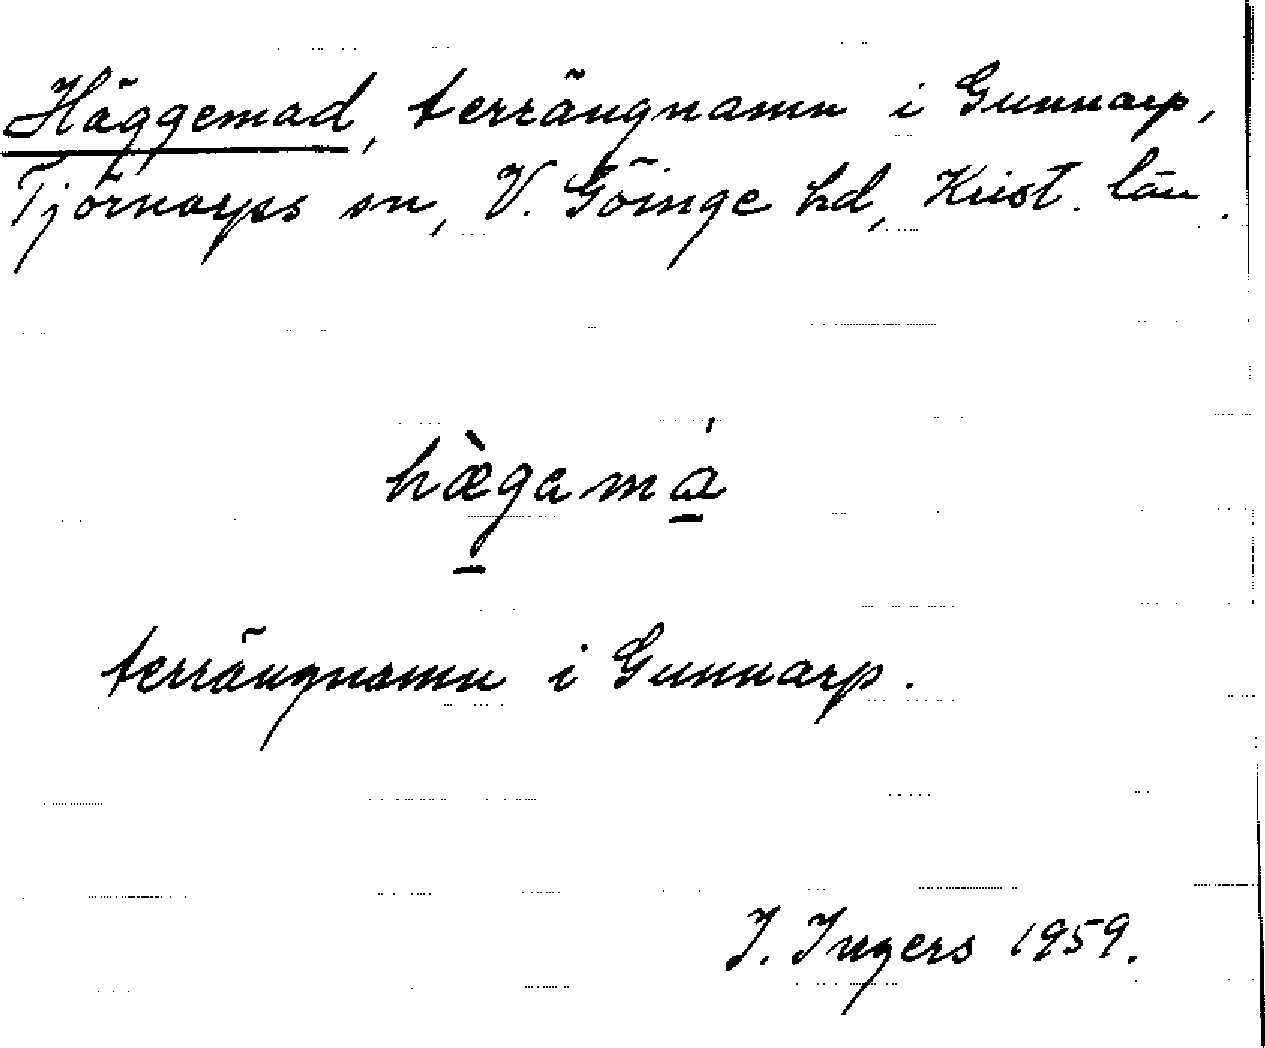 Häggemad, terrängnamn i Gunnarp,
Tjörnarps sn, V. Göinge hd, Krist. län.
hæ̀gamá
terrängnamn i Gunnarp.
I. Ingers 1959.